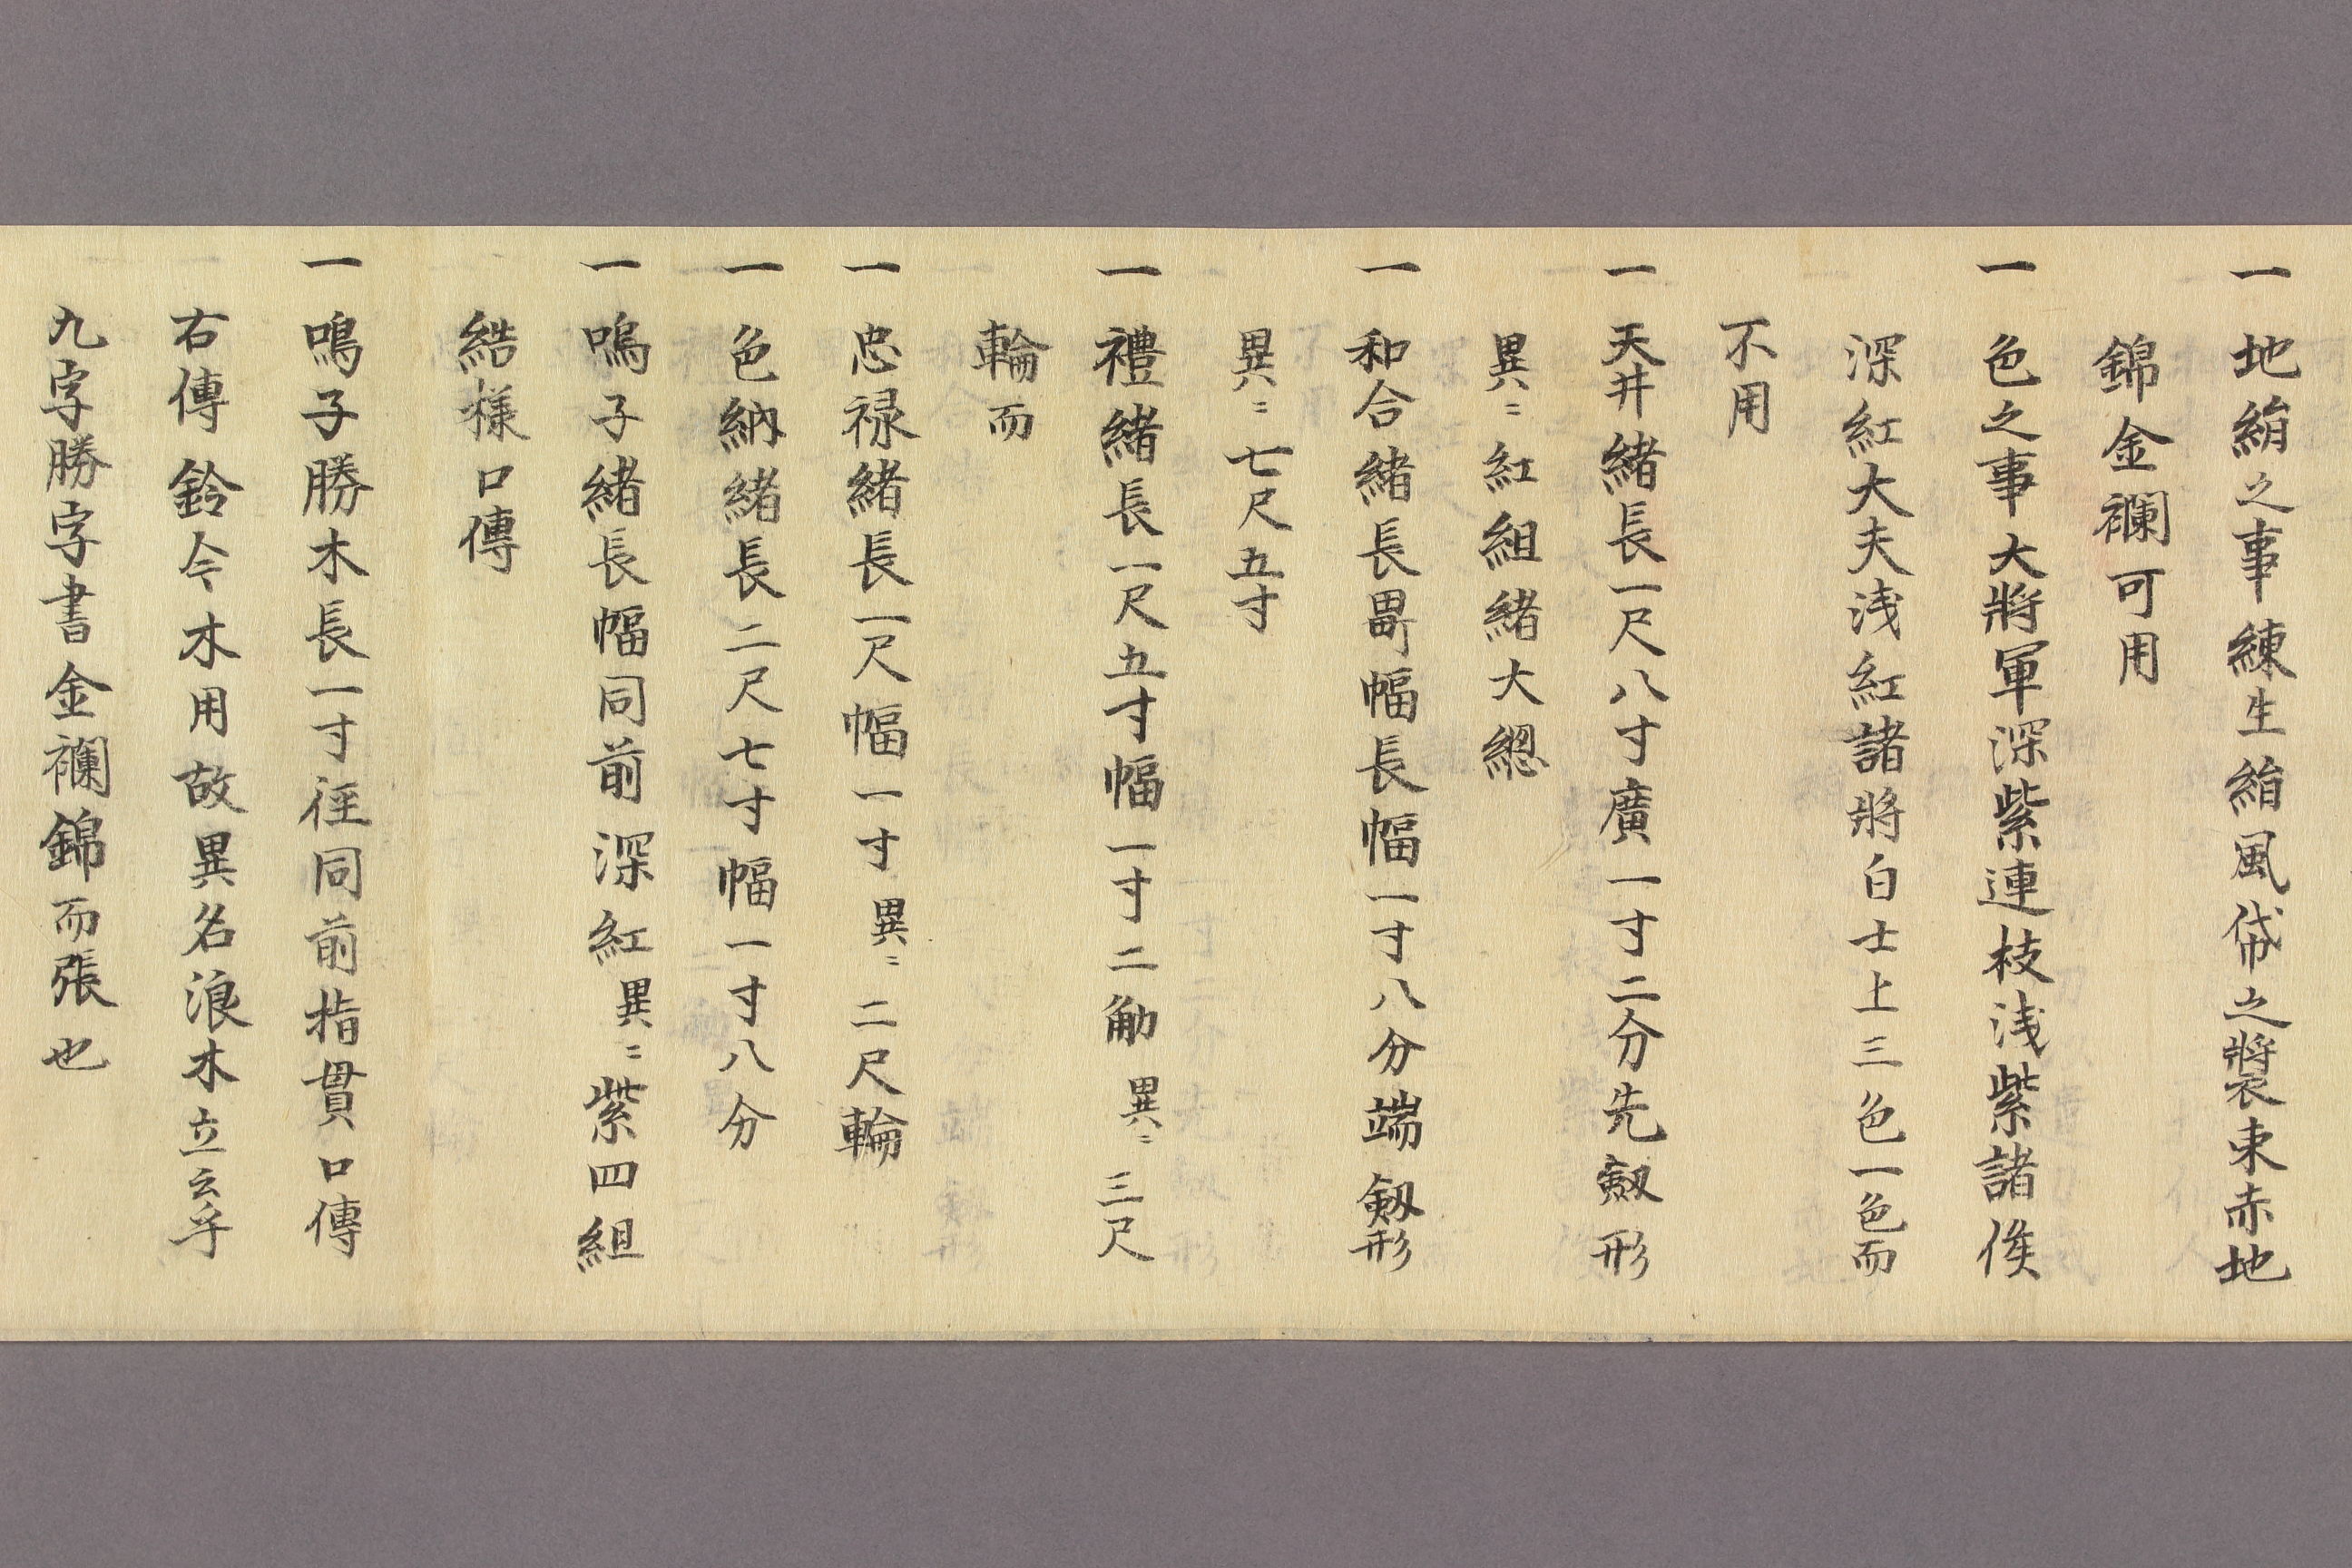 一 地絹之事練生絹風帒之裝束赤地
錦金襴可用
一 色之事大將軍深紫連枝浅紫諸侯
深紅大夫浅紅諸將白士上三色一色而
不用
一 天井緒長一尺八寸廣一寸二分先劔形
異ニ紅組緒大緫
一 和合緒長畧幅長幅一寸八分端劔形
異ニ七尺五寸
一 禮緒長一尺五寸幅一寸二 異ニ三尺
輪而
一 忠禄緒長一尺幅一寸異ニ二尺輪
一 色納緒長二尺七寸幅一寸八分
一 鳴子緒長幅同前深紅異ニ紫四組
結様口傳
一 鳴子勝木長一寸徑同前指貫口傳
右傳鈴今木用故異名浪木立云乎
九字勝字書金襴錦而張也